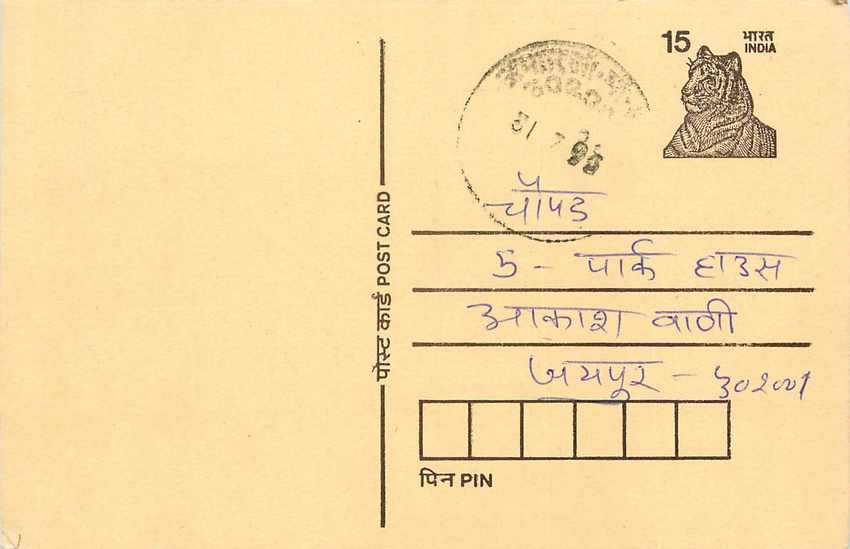 15 भारत
INDIA
31 7 95
चौपड
5 - पार्क हाउस
आकाश वाणी
जयपुर - ३०२००१
पिन PIN
पोस्ट कार्ड POST CARD